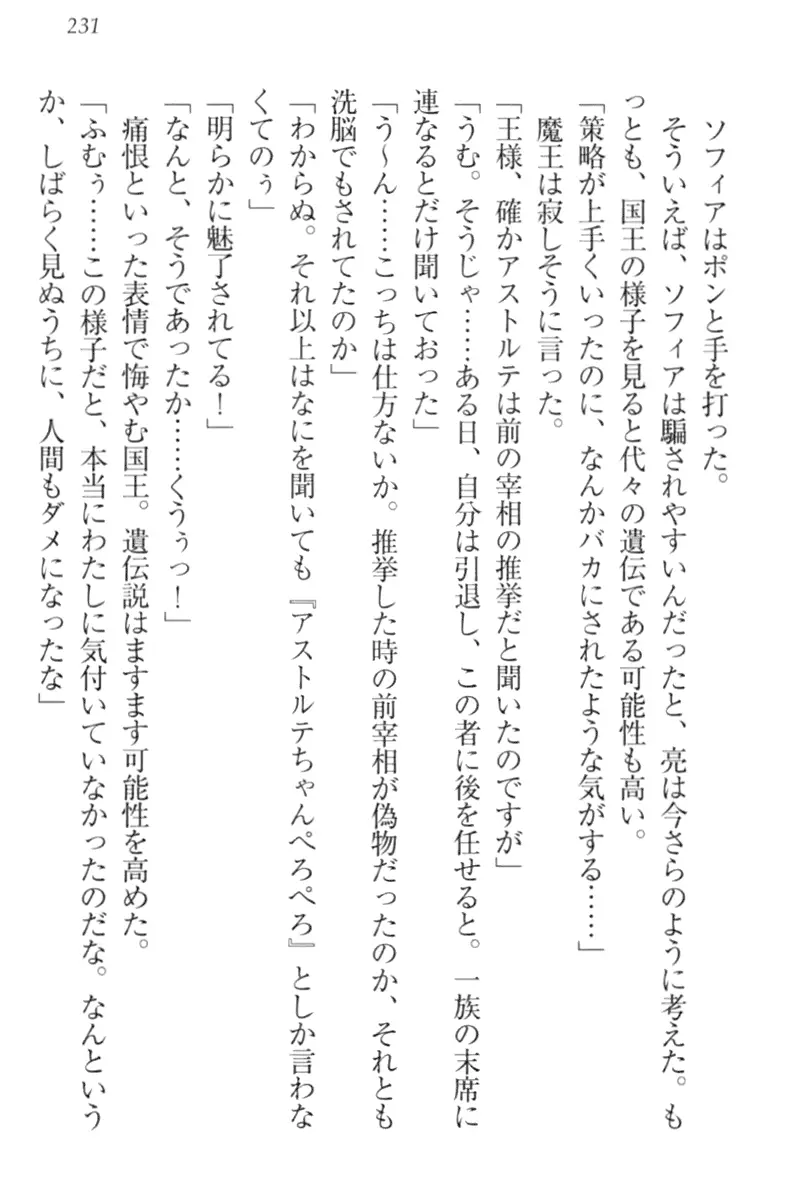 231
ソフィアはポンと手を打った。
そういえば、ソフィアは騙されやすいんだったと、亮は今さらのように考えた。も
っとも、国王の様子を見ると代々の遺伝である可能性も高い。
「策略が上手くいったのに、なんかバカにされたような気がする……」
魔王は寂しそうに言った。
「王様、確かアストルテは前の宰相の推挙だと聞いたのですが」
「うむ。そうじゃ……ある日、自分は引退し、この者に後を任せると。一族の末席に
連なるとだけ聞いておった」
「う～ん……こっちは仕方ないか。推挙した時の前宰相が偽物だったのか、それとも
洗脳でもされてたのか」
「わからぬ。それ以上はなにを聞いても『アストルテちゃんぺろぺろ』としか言わな
くてのぅ」
「明らかに魅了されてる！」
「なんと、そうであったか……くうぅっ！」
痛恨といった表情で悔やむ国王。遺伝説はますます可能性を高めた。
「ふむぅ……この様子だと、本当にわたしに気付いていなかったのだな。なんという
か、しばらく見ぬうちに、人間もダメになったな」